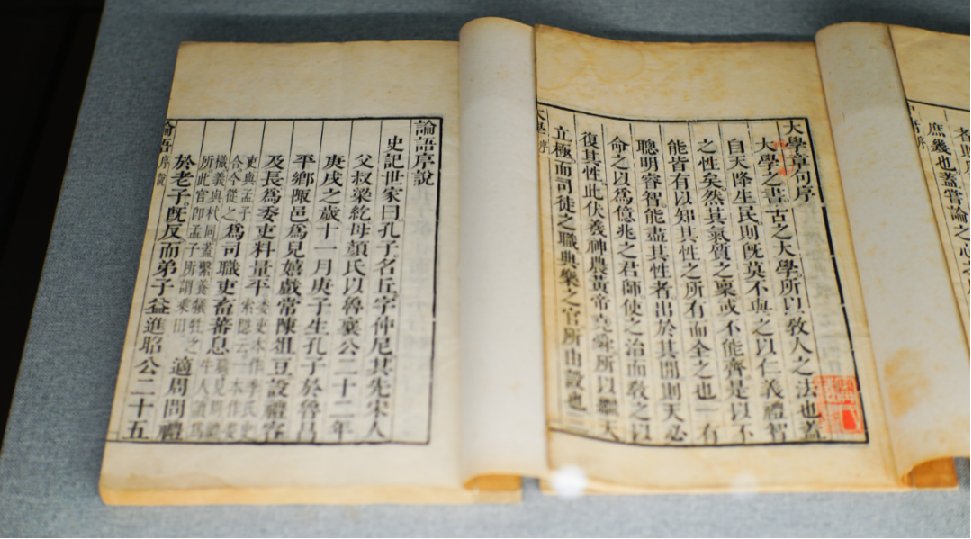 庶幾也蓋嘗論之心之
大學章句序
大學之書古之大學所以教人之法也蓋
自天降生民則旣莫不與之以仁義禮智
之性矣然其氣質之稟或不能齊是以不
能皆有以知其性之所有而全之也一有
聰明睿智能盡其性者出於其間則天必
命之以爲億兆之君師使之治而教之以
復其性此伏羲神農黃帝堯舜所以繼天
立極而司徒之職典樂之官所由設也
大學序
論語序說
史記世家曰孔子名丘字仲尼其先宋人
父叔梁紇母顏氏以魯襄公二十二年
庚戌之歲十一月庚子生孔子於魯昌
平鄉陬邑爲兒嬉戲常陳俎豆設禮容
及長爲委吏料量平委吏本作季氏史索隱云一本作委
吏與孟子合今從之爲司職吏畜蕃息職見周禮牛人讀爲
樴義與杙同蓋繫養犧牲之所此官卽孟子所謂乘田適周問禮
於老子旣反而弟子益進昭公二十五
論語序說